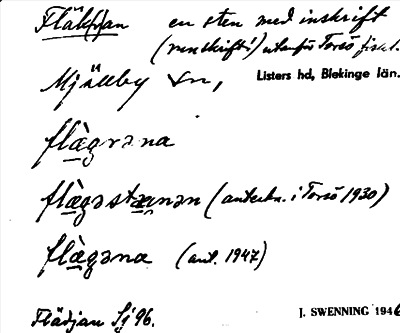 Fläk(j)an en sten med inskrift
(runskrift?) utanför Torsö fisel.
Mjällby sn, Listers hd, Blekinge län.
flàgrəna
flàgəstæ̀nən (anteckn. i Torsö 1930)
flàgəna (ant. 1947)
Flädjan Sj 96. J. SWENNING 1946